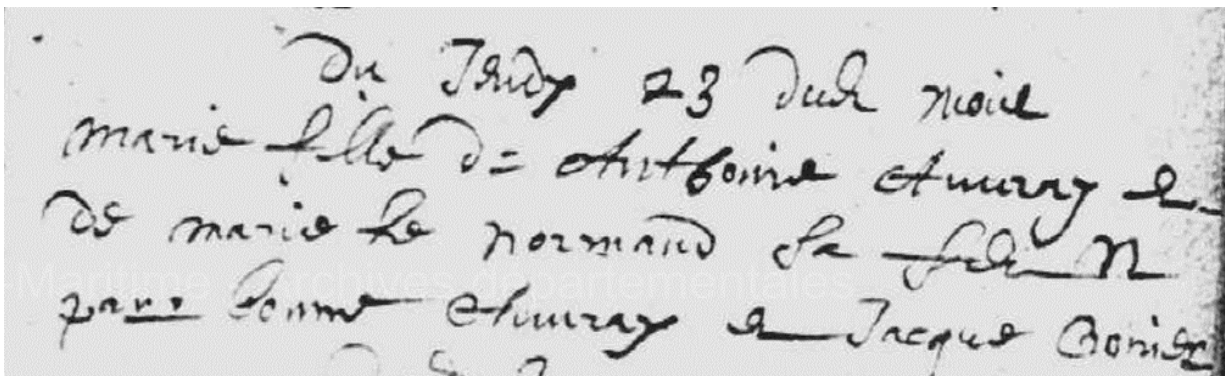 Du Jeudy 23 dud mois
marie fille de Anthoine Auvray et
de marie le normand sa fe N
par bonne Auvray et Jacque
Maritime - Archives départementales